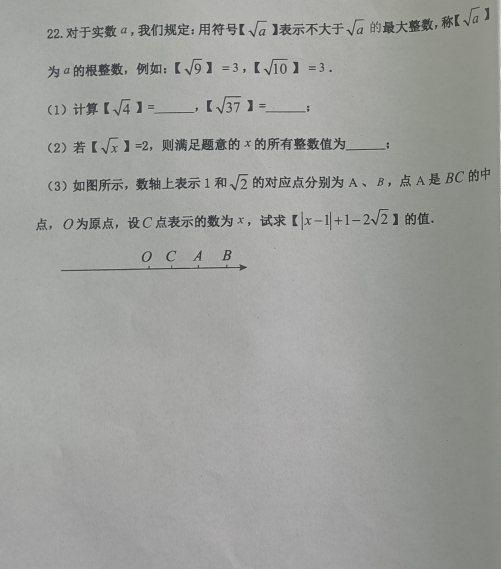 22.对于实数a,我们规定:用符号【√a】表示不大于√a的最大整数,称【√a】
为a的根整数,例如:【√9】=3,【√10】=3.
(1)计算【√4】=______,【√37】=______;
(2)若【√x】=2,则满足题意的x的所有整数值为______;
(3)如图所示,数轴上表示1和√2的对应点分别为A、B,点A是BC的中
点,O为原点,设C点表示的数为x,试求【|x−1|+1−2√2】的值.
O C A B